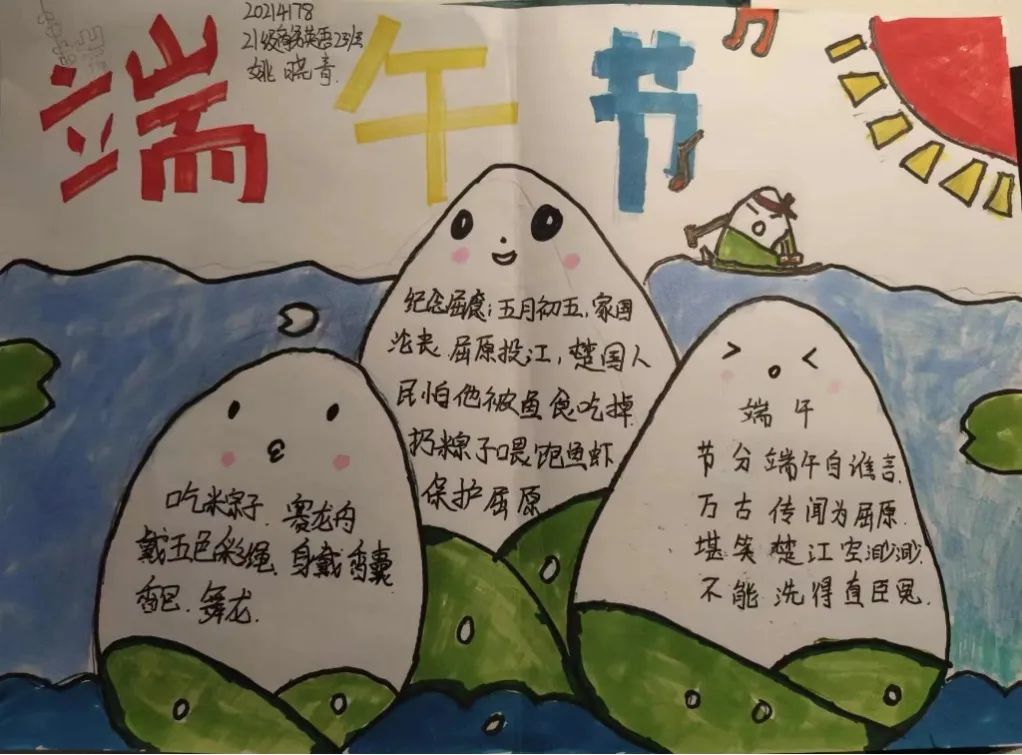 20214178
21级商务英语23班
姚晓青
端午节
纪念屈原：五月初五，家国
沦丧 屈原投江，楚国人
民怕他被鱼食吃掉
扔粽子喂饱鱼虾
保护屈原
吃粽子 赛龙舟
戴五色彩绳 身戴香囊
香包 舞龙
端午
节分端午自谁言
万古传闻为屈原
堪笑楚江空渺渺
不能洗得直臣冤